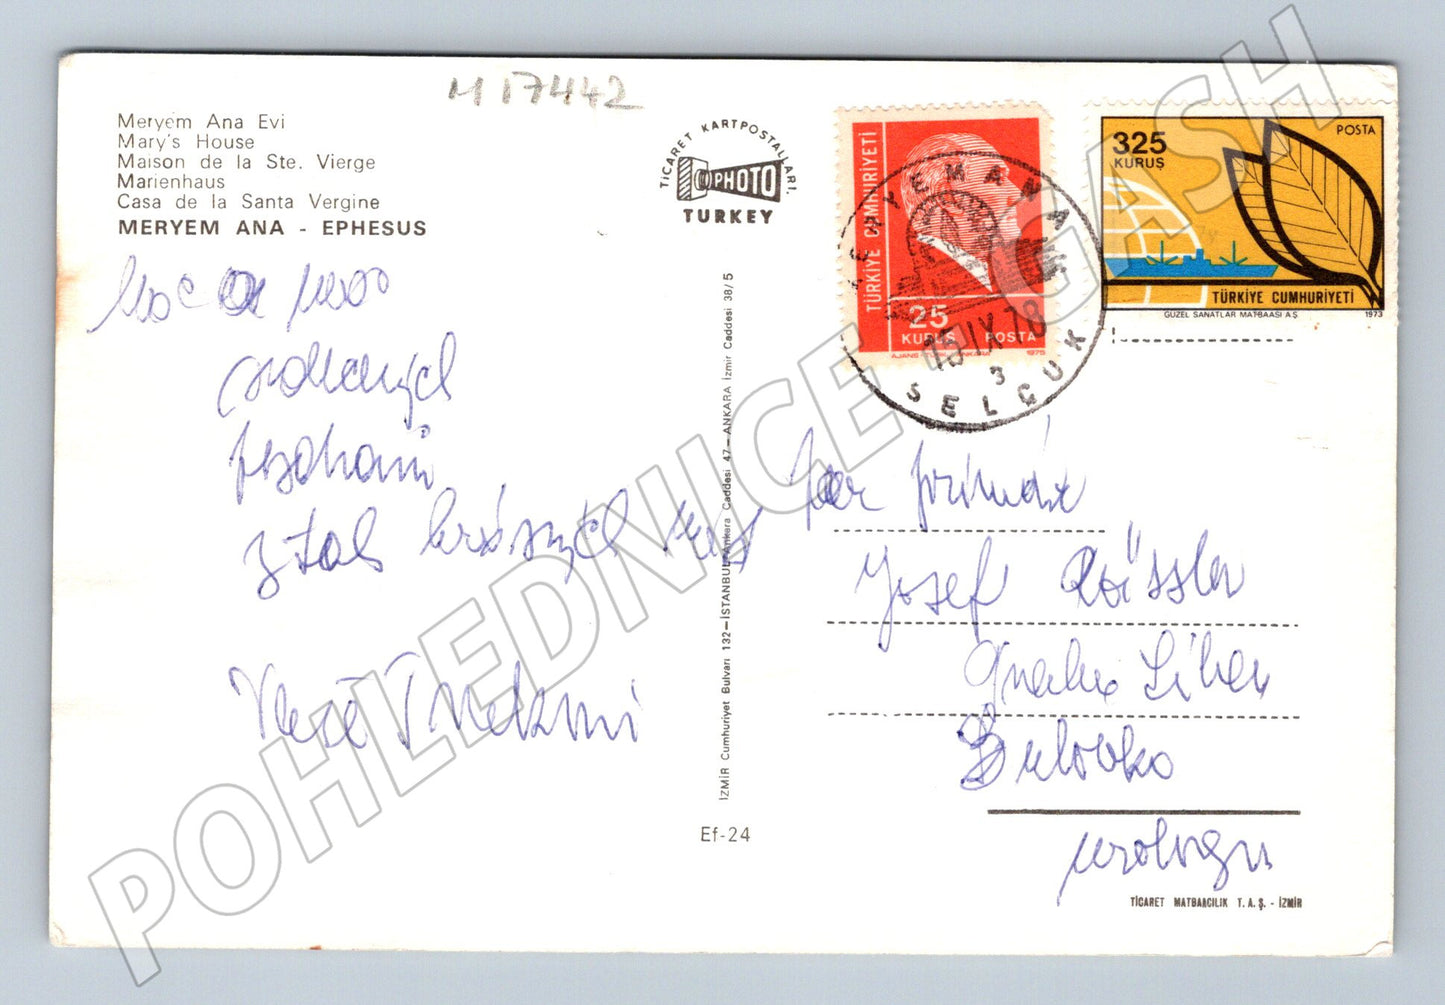 M 17442
Meryem Ana Evi
Mary's House
Maison de la Ste. Vierge
Marienhaus
Casa de la Santa Vergine
MERYEM ANA - EPHESUS
TİCARET KARTPOSTALLARI.
PHOTO
TURKEY
TÜRKİYE CUMHURİYETİ
25
KURUŞ POSTA
AJANS-TÜRK/ANKARA 1975
MERYEMANA
15 IX 78
3
SELÇUK
325
KURUŞ
POSTA
TÜRKİYE CUMHURİYETİ
GÜZEL SANATLAR MATBAASI A.Ş. 1973
srdečných
pozdravů
z tak krásných míst
pan primář
Josef Rössler
Praha Libeň
Bulovka
urologie
İZMİR Cumhuriyet Bulvarı 132-İSTANBUL Ankara Caddesi 47-ANKARA İzmir Caddesi 38/5
Ef-24
TİCARET MATBAACILIK T.A.Ş. - İZMİR
POHLEDNICE - GASH